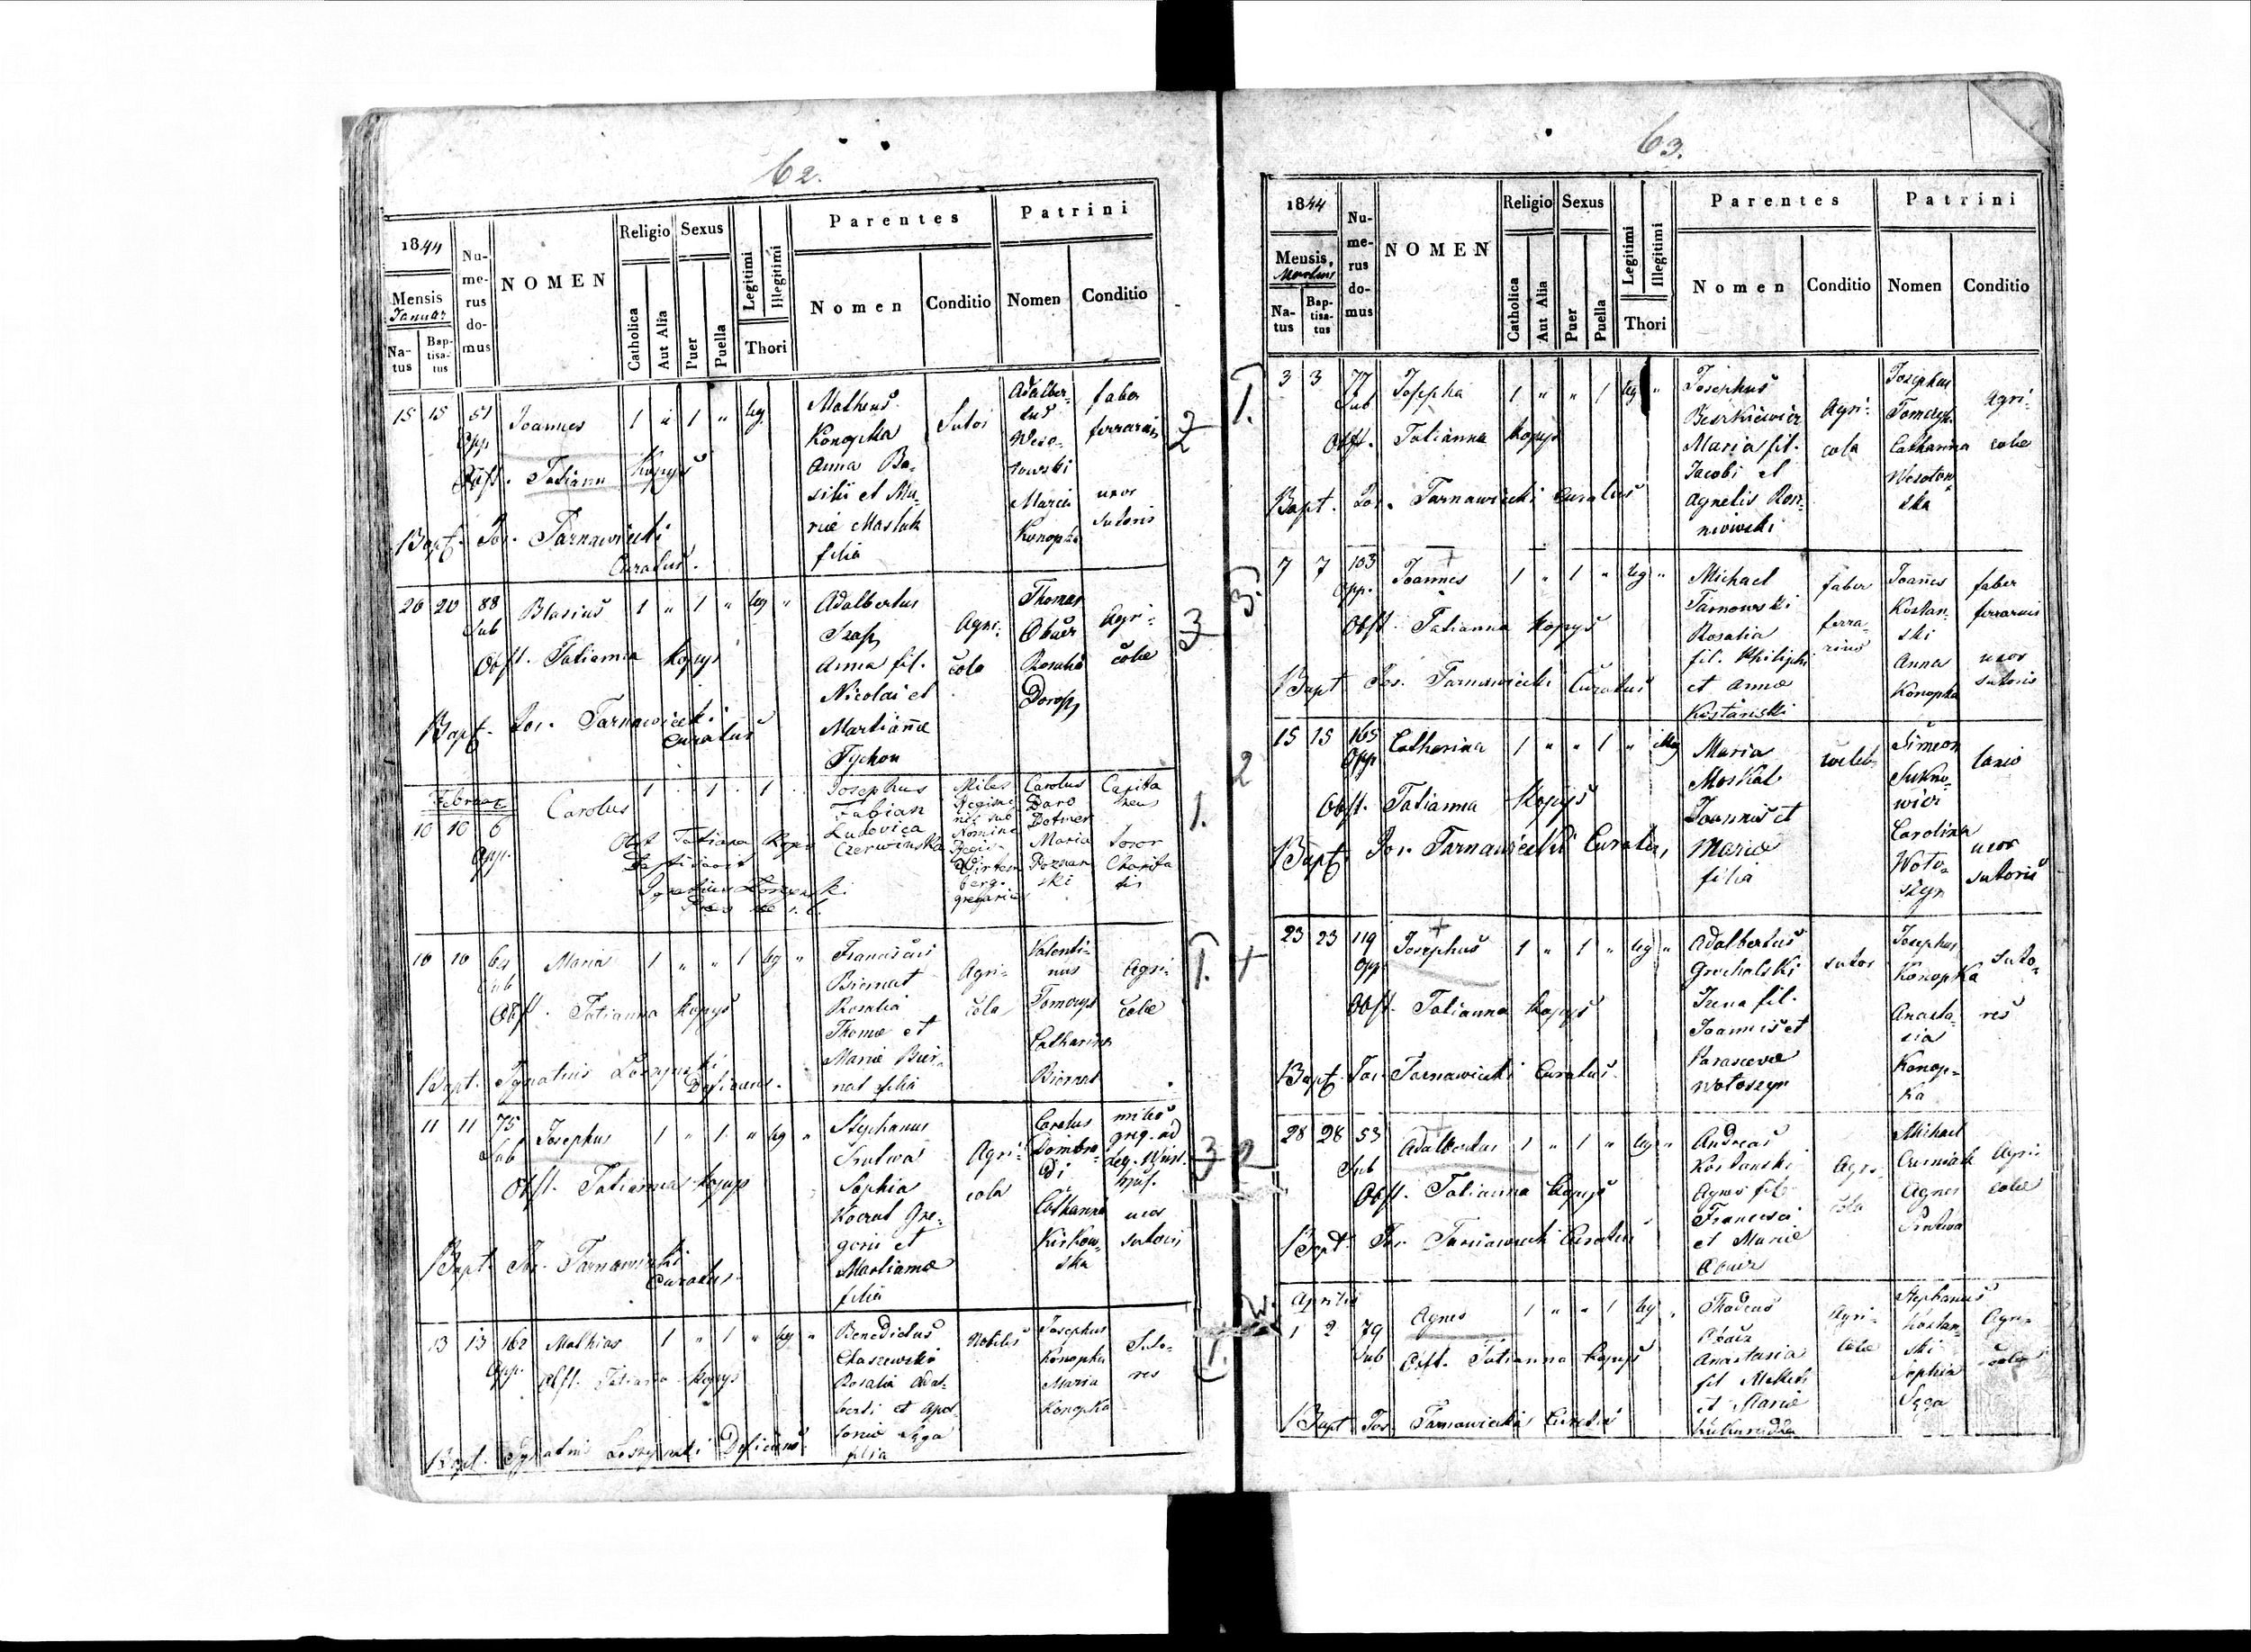 62.
1844
Mensis
Januar
Na-
tus
Bap-
tisa-
tus
Nu-
me-
rus
do-
mus
NOMEN
Religio
Catholica
Aut Alia
Sexus
Puer
Puella
Legitimi
Illegitimi
Thori
Parentes
Nomen
Conditio
Patrini
Nomen
Conditio
15 15 51 Joannes 1 " 1 " leg.
Opp
Obst. Tatianna Kopyś
Bapt. Jos. Tarnawiecki
Curatus.
Matheus
Konopka
Anna Ba-
silii et Ma-
riae Mastuk
filia
Sutor
Adalber-
tus
Weso-
łowski
Maria
Konopka
faber
ferrarius
uxor
sutoris
2
20 20 88 Blasius 1 " 1 " leg "
Sub
Obst. Tatianna Kopyś
Bapt. Jos. Tarnawiecki
Curatus
Adalbertus
Anna fil.
Nicolai et
Martiannae
Tychon
Agri-
cola
Thomas
Obacz
Rosalia
Agri-
colae
3
Februar
10 10 6 Carolus 1 . 1 . 1
Opp.
Obst Tatiana Kopys
Josephus
Fabian
Ludovica
Czerwinska
Miles
Regimi-
nis sub
Nomine
Regis
Wirtem
berg.
gregarius
Carolus
Daro
Dotmer
Maria
Poznan
ski
Capita
neus
Soror
Charita
tis
1.
10 10 64 Maria 1 " " 1 leg "
Sub
Obst. Tatianna Kopyś
Bapt. Ignatius
Deficiens.
Franciscus
Biernat
Rosalia
Thomae et
Mariae Bier-
nat filia
Agri-
cola
Valenti-
nus
Tomczys
Catharina
Biernat
Agri-
colae
1.
11 11 75 Josephus 1 " 1 " leg "
Sub
Obst. Tatianna Kopyś
Bapt. Jos. Tarnawiecki
Curatus
Stephanus
Srutwa
Sophia
Koczut Gre-
gorii et
Martiannae
filia
Agri-
cola
Carolus
Dombro-
di
Catharina
Kirkow-
ska
miles
greg. ad
uxor
sutoris
3
13 13 162 Mathias 1 " 1 " leg "
Opp.
Obst. Tatianna Kopyś
Bapt. Ignatius Deficiens
Benedictus
Chaszewski
Rosalia Adal-
berti et Apol-
loniae Sęga
filia
Nobiles
Josephus
Konopka
Maria
Konopka
Suto-
res
1.
63.
1844
Mensis
Martius
Na-
tus
Bap-
tisa-
tus
Nu-
me-
rus
do-
mus
NOMEN
Religio
Catholica
Aut Alia
Sexus
Puer
Puella
Legitimi
Illegitimi
Thori
Parentes
Nomen
Conditio
Patrini
Nomen
Conditio
1.
3 3 77 Josepha 1 " " 1 leg "
Sub
Obst. Tatianna Kopyś
Bapt. Jos. Tarnawiecki Curatus
Josephus
Beszkiewicz
Maria fil.
Jacobi et
Agnetis
Agri-
cola
Josephus
Tomczyk
Catharina
Wesołow-
ska
Agri-
colae
3.
7 7 103 Joannes 1 " 1 " leg "
Opp.
Obst. Tatianna Kopyś
Bapt Jos. Tarnawiecki Curatus
Michael
Tarnowski
Rosalia
fil. Philippi
et Annae
Kostański
faber
ferra-
rius
Joannes
Kostan-
ski
Anna
Konopka
faber
ferrarius
uxor
sutoris
2
15 15 165 Catharina 1 " " 1 " illeg
Opp
Obst. Tatianna Kopyś
Bapt. Jos. Tarnawiecki Curatus
Maria
Moskal
Joannis et
Mariae
filia
Simeon
Sukno-
wicz
Carolina
Woło-
szyn
lanio
uxor
sutoris
+
23 23 119 Josephus 1 " 1 " leg "
Opp
Obst. Tatianna Kopyś
Bapt. Jos. Tarnawiecki Curatus
Adalbertus
Grochalski
Irena fil.
Joannis et
Parascevae
Wołoszyn
sutor
Josephus
Konopka
Anasta-
sia
Konop-
ka
Suto-
res
2
28 28 53 Adalbertus 1 " 1 " leg "
Sub
Obst. Tatianna Kopyś
Bapt. Jos. Tarnawiecki Curatus
Andreas
Kostanski
Agnes fil.
Francisci
et Mariae
Obacz
Agri-
cola
Michael
Czerniak
Agnes
Srutwa
Agri-
colae
Aprilis
1 2 79 Agnes 1 " " 1 leg "
Sub
Obst. Tatianna Kopyś
Bapt Jos. Tarnawiecki Curatus
Thadeus
Obacz
Anastasia
fil Mathei
et Mariae
Kukurudza
Agri-
colae
Stephanus
Kostan-
ski
Sophia
Sęga
Agri-
colae